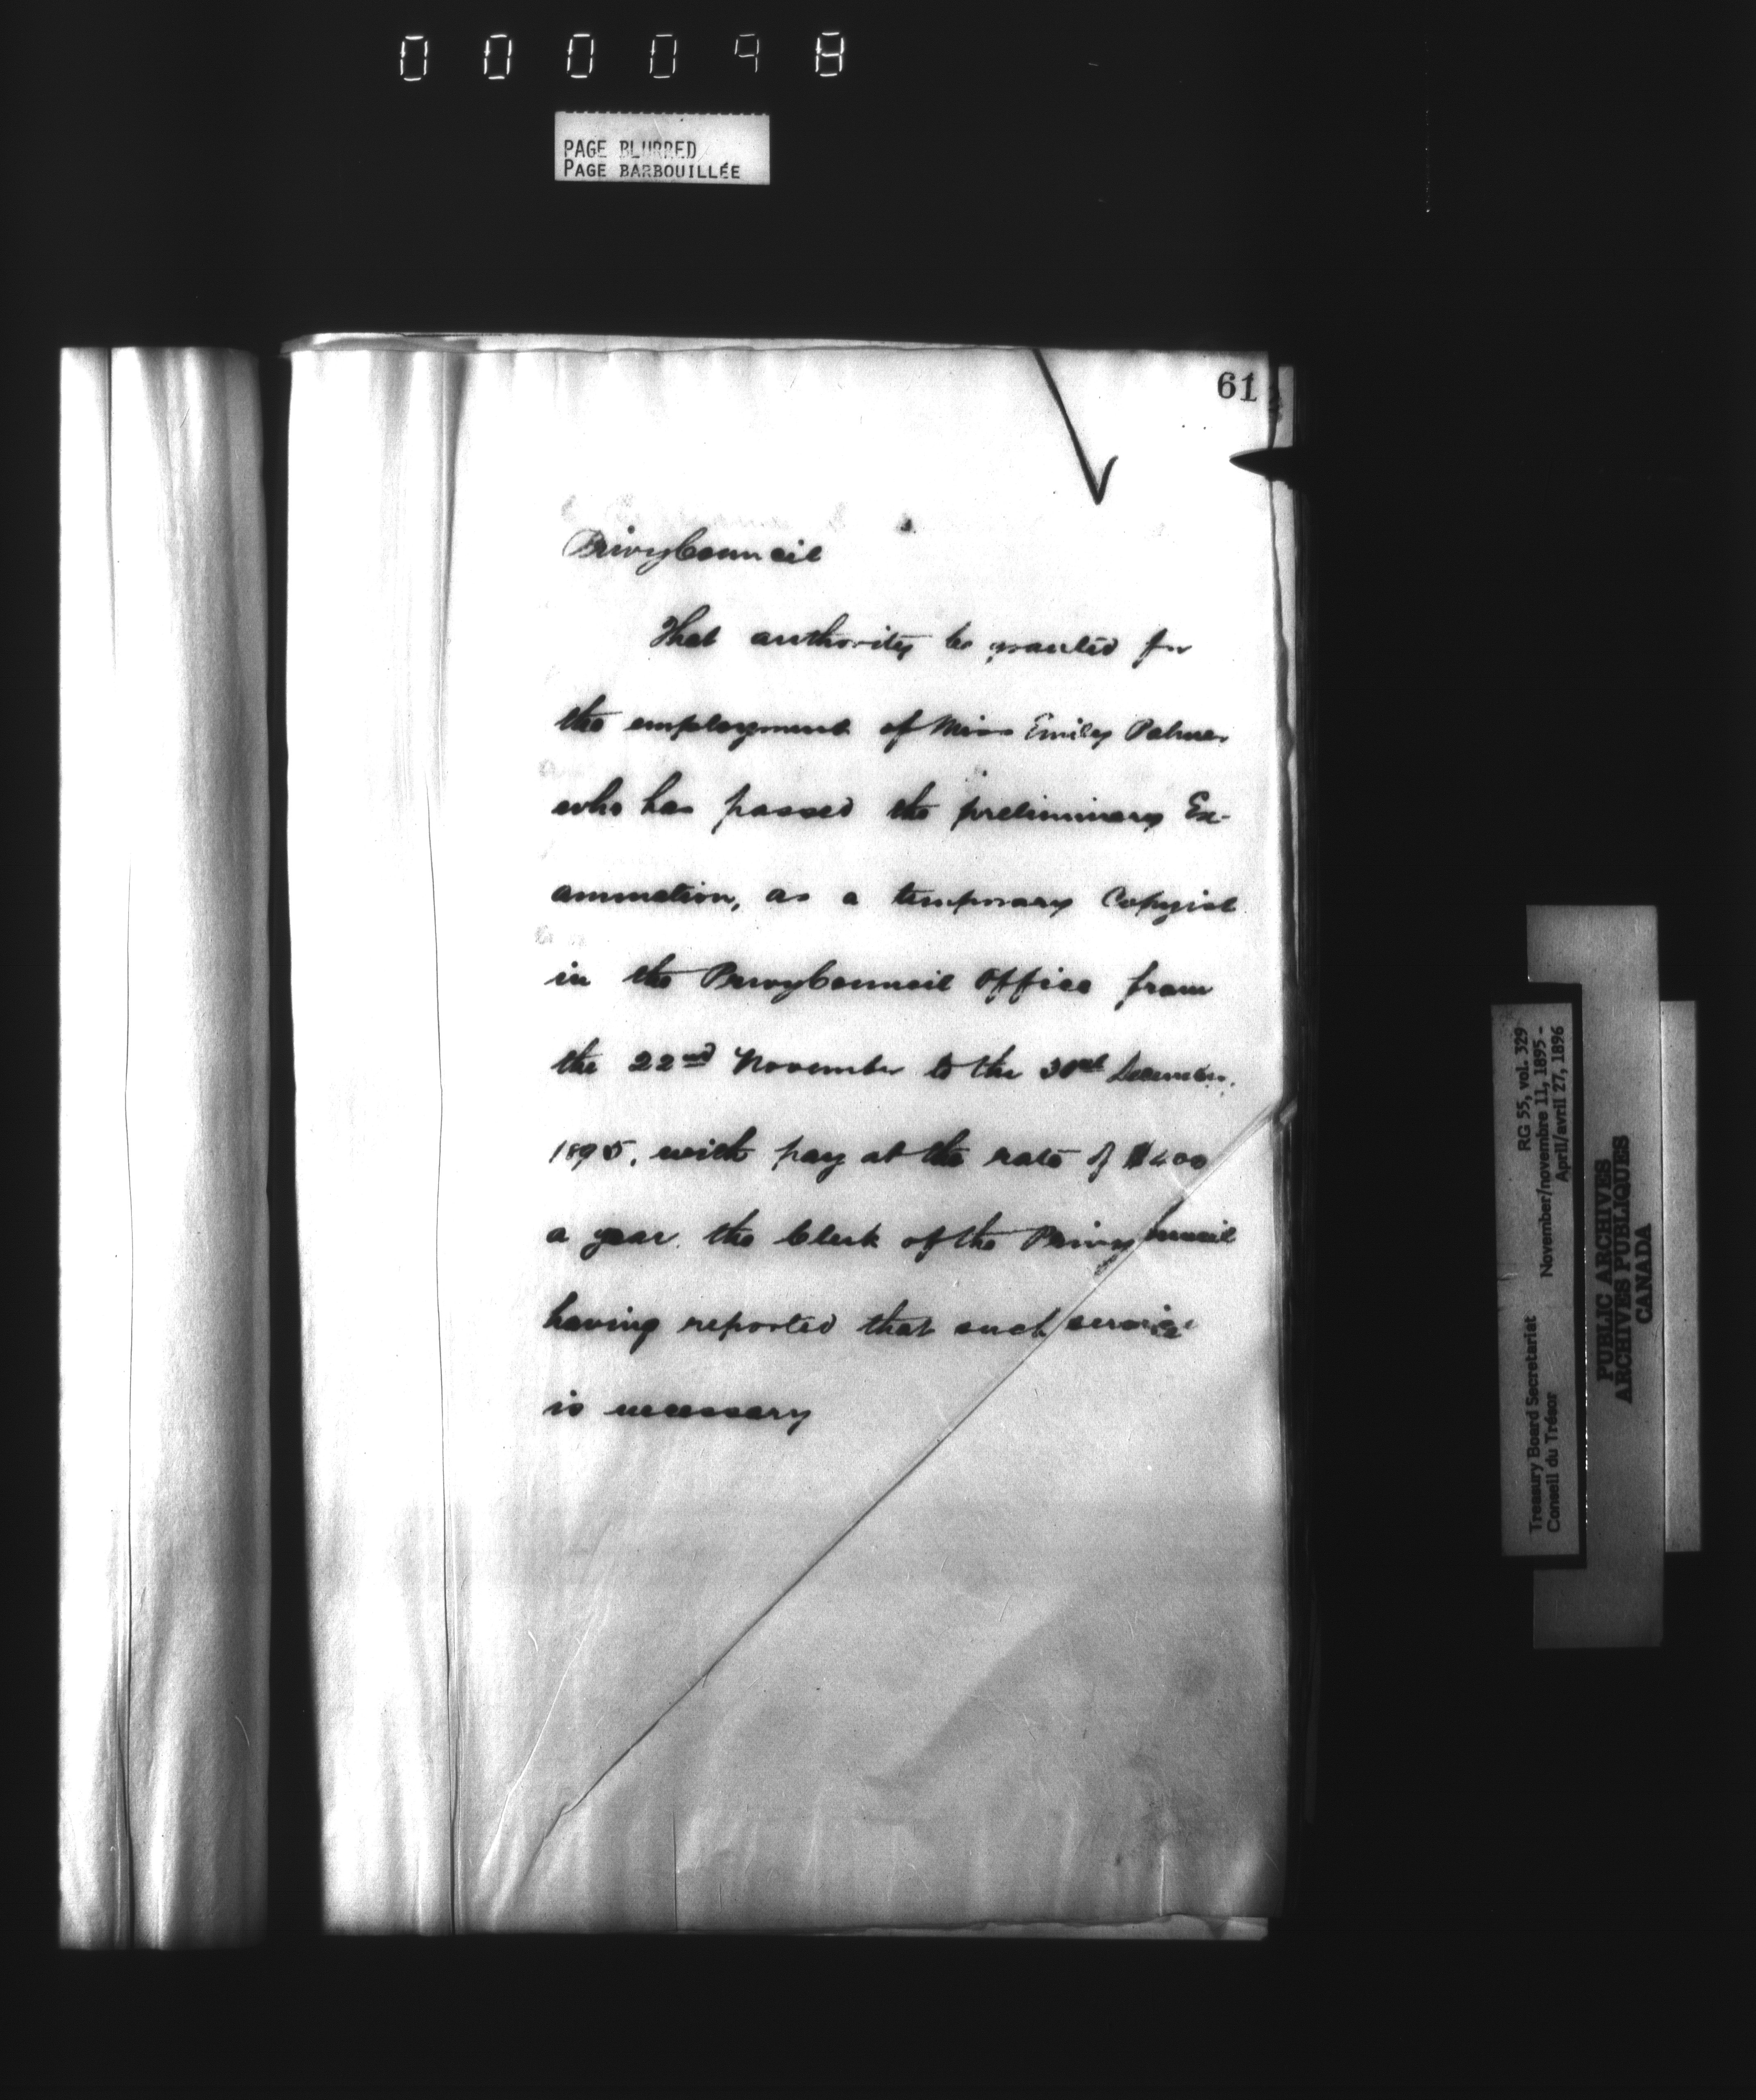 000098
PAGE BLURRED
PAGE BARBOUILLÉE
61
Privy Council
That authority be granted for
the employment of Miss Emily Palmer
who has passed the preliminary Ex-
amination, as a temporary Copyist
in the Privy Council Office from
the 22nd November to the December,
1895, with pay at the rate of $400
a year. the Clerk of the Privy ouncil
having reported that such service
is necessary
Treasury Board Secretariat RG 55, vol. 329
Conseil du Trésor November/novembre 11, 1895 -
April/avril 27, 1896
PUBLIC ARCHIVES
ARCHIVES PUBLIQUES
CANADA